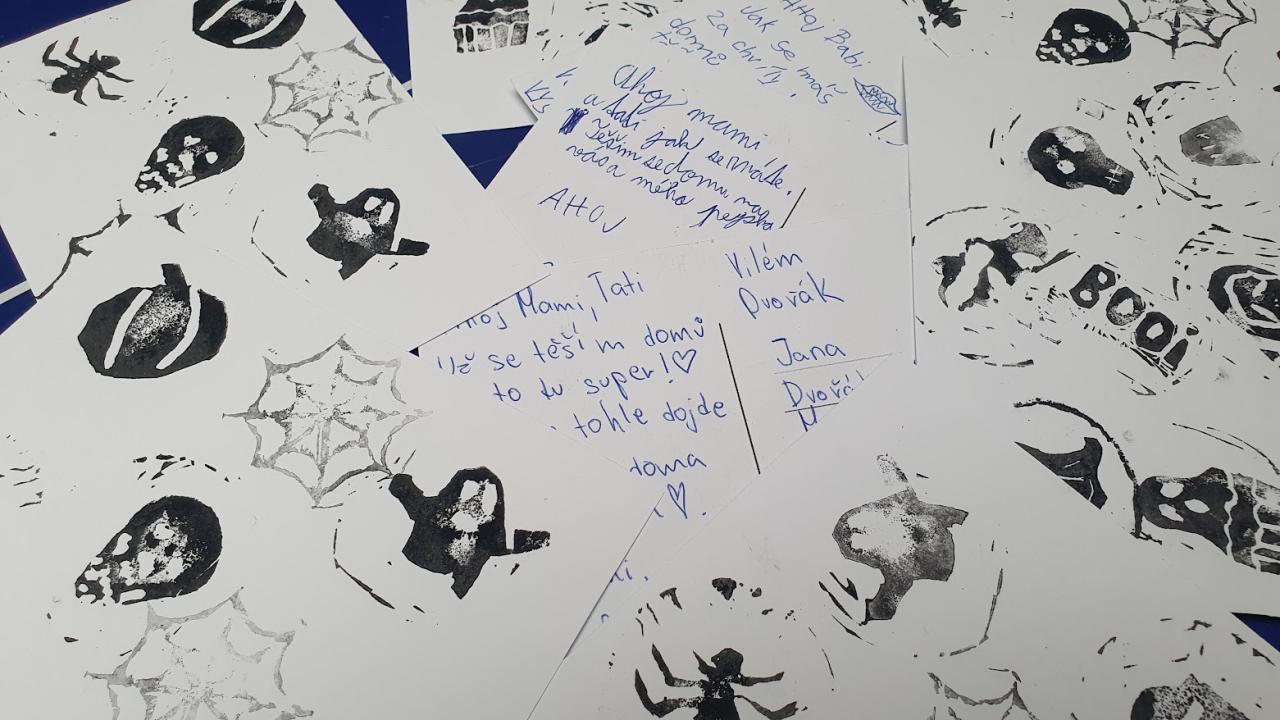 AHOJ Babi
Jak se máš
Za chvíly
domů
Ahoj mami
a tati jak se máte.
Těším se domu na
vás a mého pejska
AHOJ
Mami, Tati
se těším domů
to tu super!♡
tohle dojde
♡.
Vilém
Dvořák
Jana
BOO!